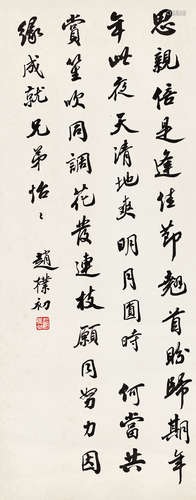 思親倍是逢佳節翹首盼歸期年
年此夜天清地爽明月圓時 何當共
賞笙吹同調花發連枝願同努力因
緣成就兄弟怡〻
趙樸初